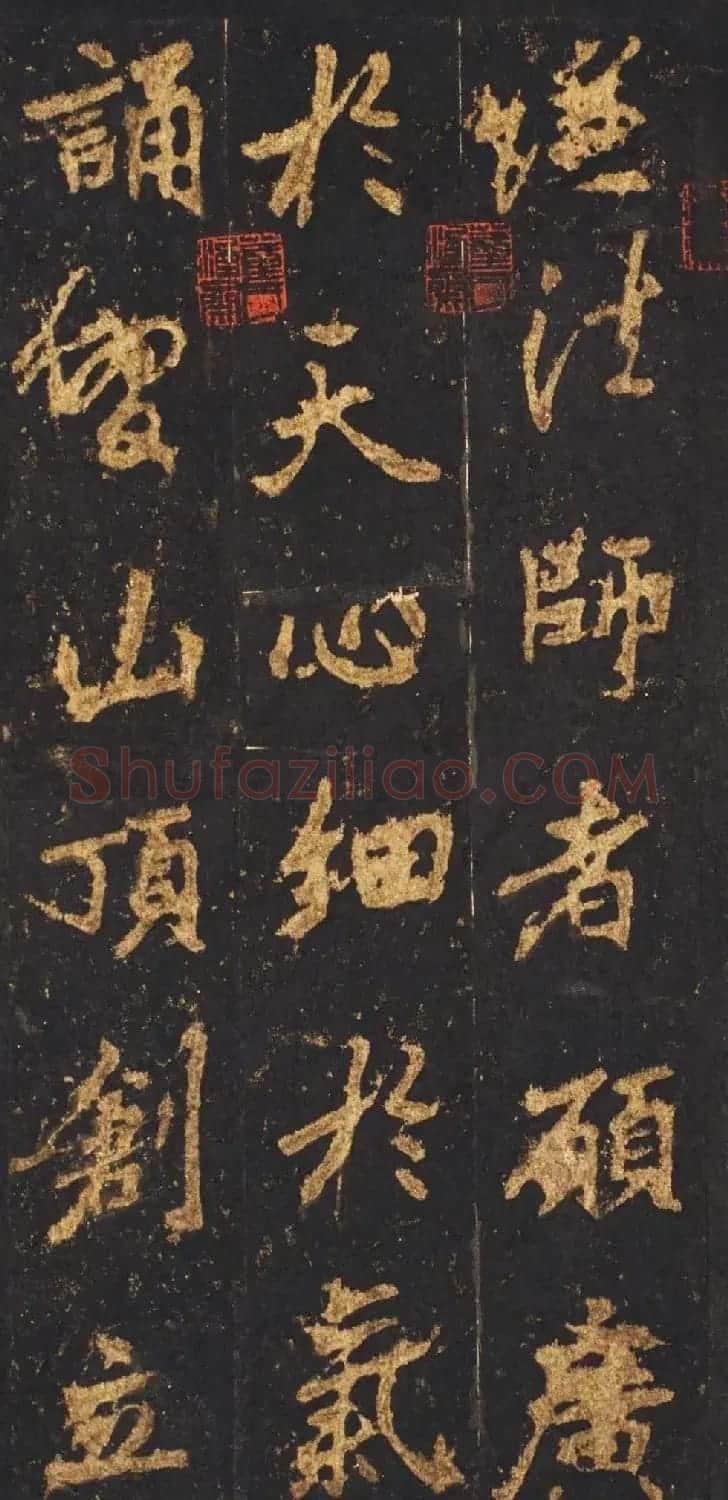 謙法師者願廣
於天心細於氣
誦習山頂創立
Shufaziliao.COM